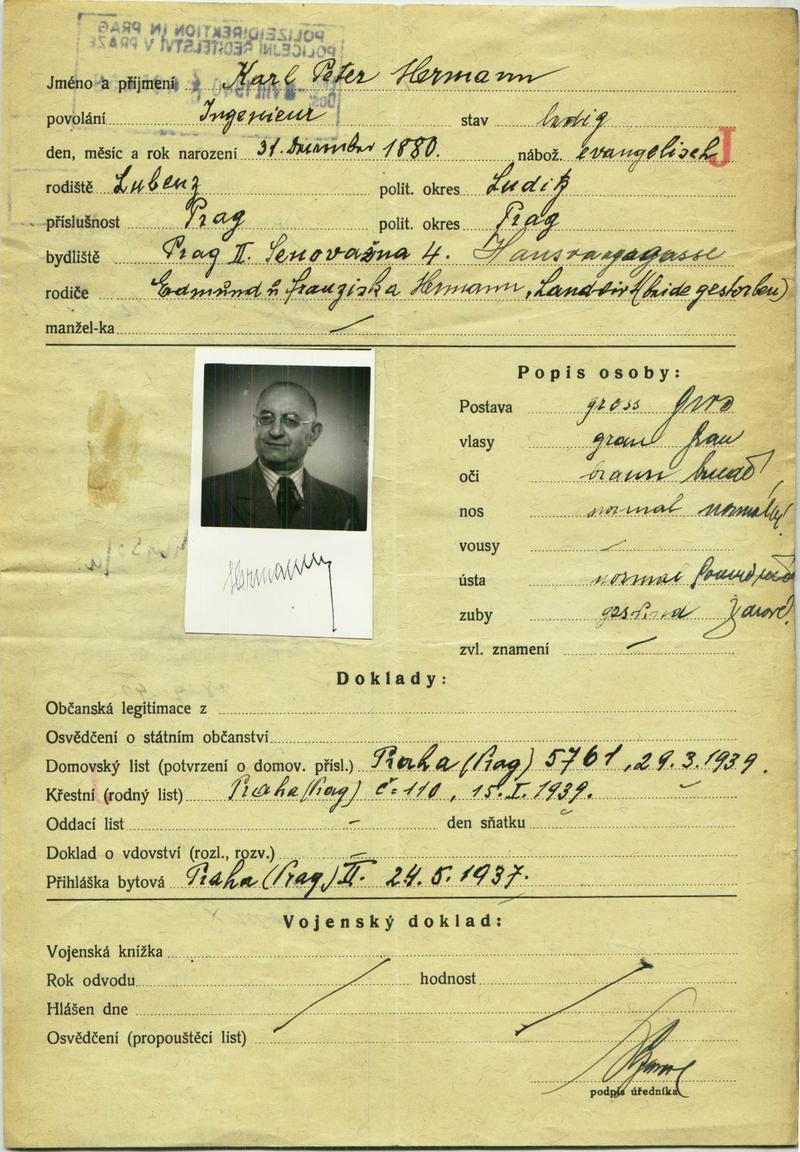 POLIZEIDIREKTION IN PRAG
POLICEJNÍ ŘEDITELSTVÍ V PRAZE
Jméno a příjmení Karl Peter Hermann
povolání Ingenieur stav ledig
den, měsíc a rok narození 31. Dezember 1880. nábož. evangelisch J
rodiště Lubenz polit. okres Luditz
příslušnost Prag polit. okres Prag
bydliště Prag II. Senovažna 4.
rodiče Edmund u Franziska Hermann, Landwirt (beide gestorben)
manžel-ka —
Popis osoby:
Postava gross
vlasy grau
oči braun
nos normal normální
vousy —
ústa normal
zuby gesund zdravé
zvl. znamení —
Hermann
Doklady:
Občanská legitimace z
Osvědčení o státním občanství
Domovský list (potvrzení o domov. přísl.) Praha (Prag) 5761, 29.3.1939.
Křestní (rodný list) Praha (Prag) č. 110, 15.I.1939.
Oddací list – den sňatku
Doklad o vdovství (rozl., rozv.) –
Přihláška bytová Praha (Prag) II. 24.5.1937.
Vojenský doklad:
Vojenská knížka
Rok odvodu hodnost
Hlášen dne
Osvědčení (propouštěcí list)
podpis úředníka